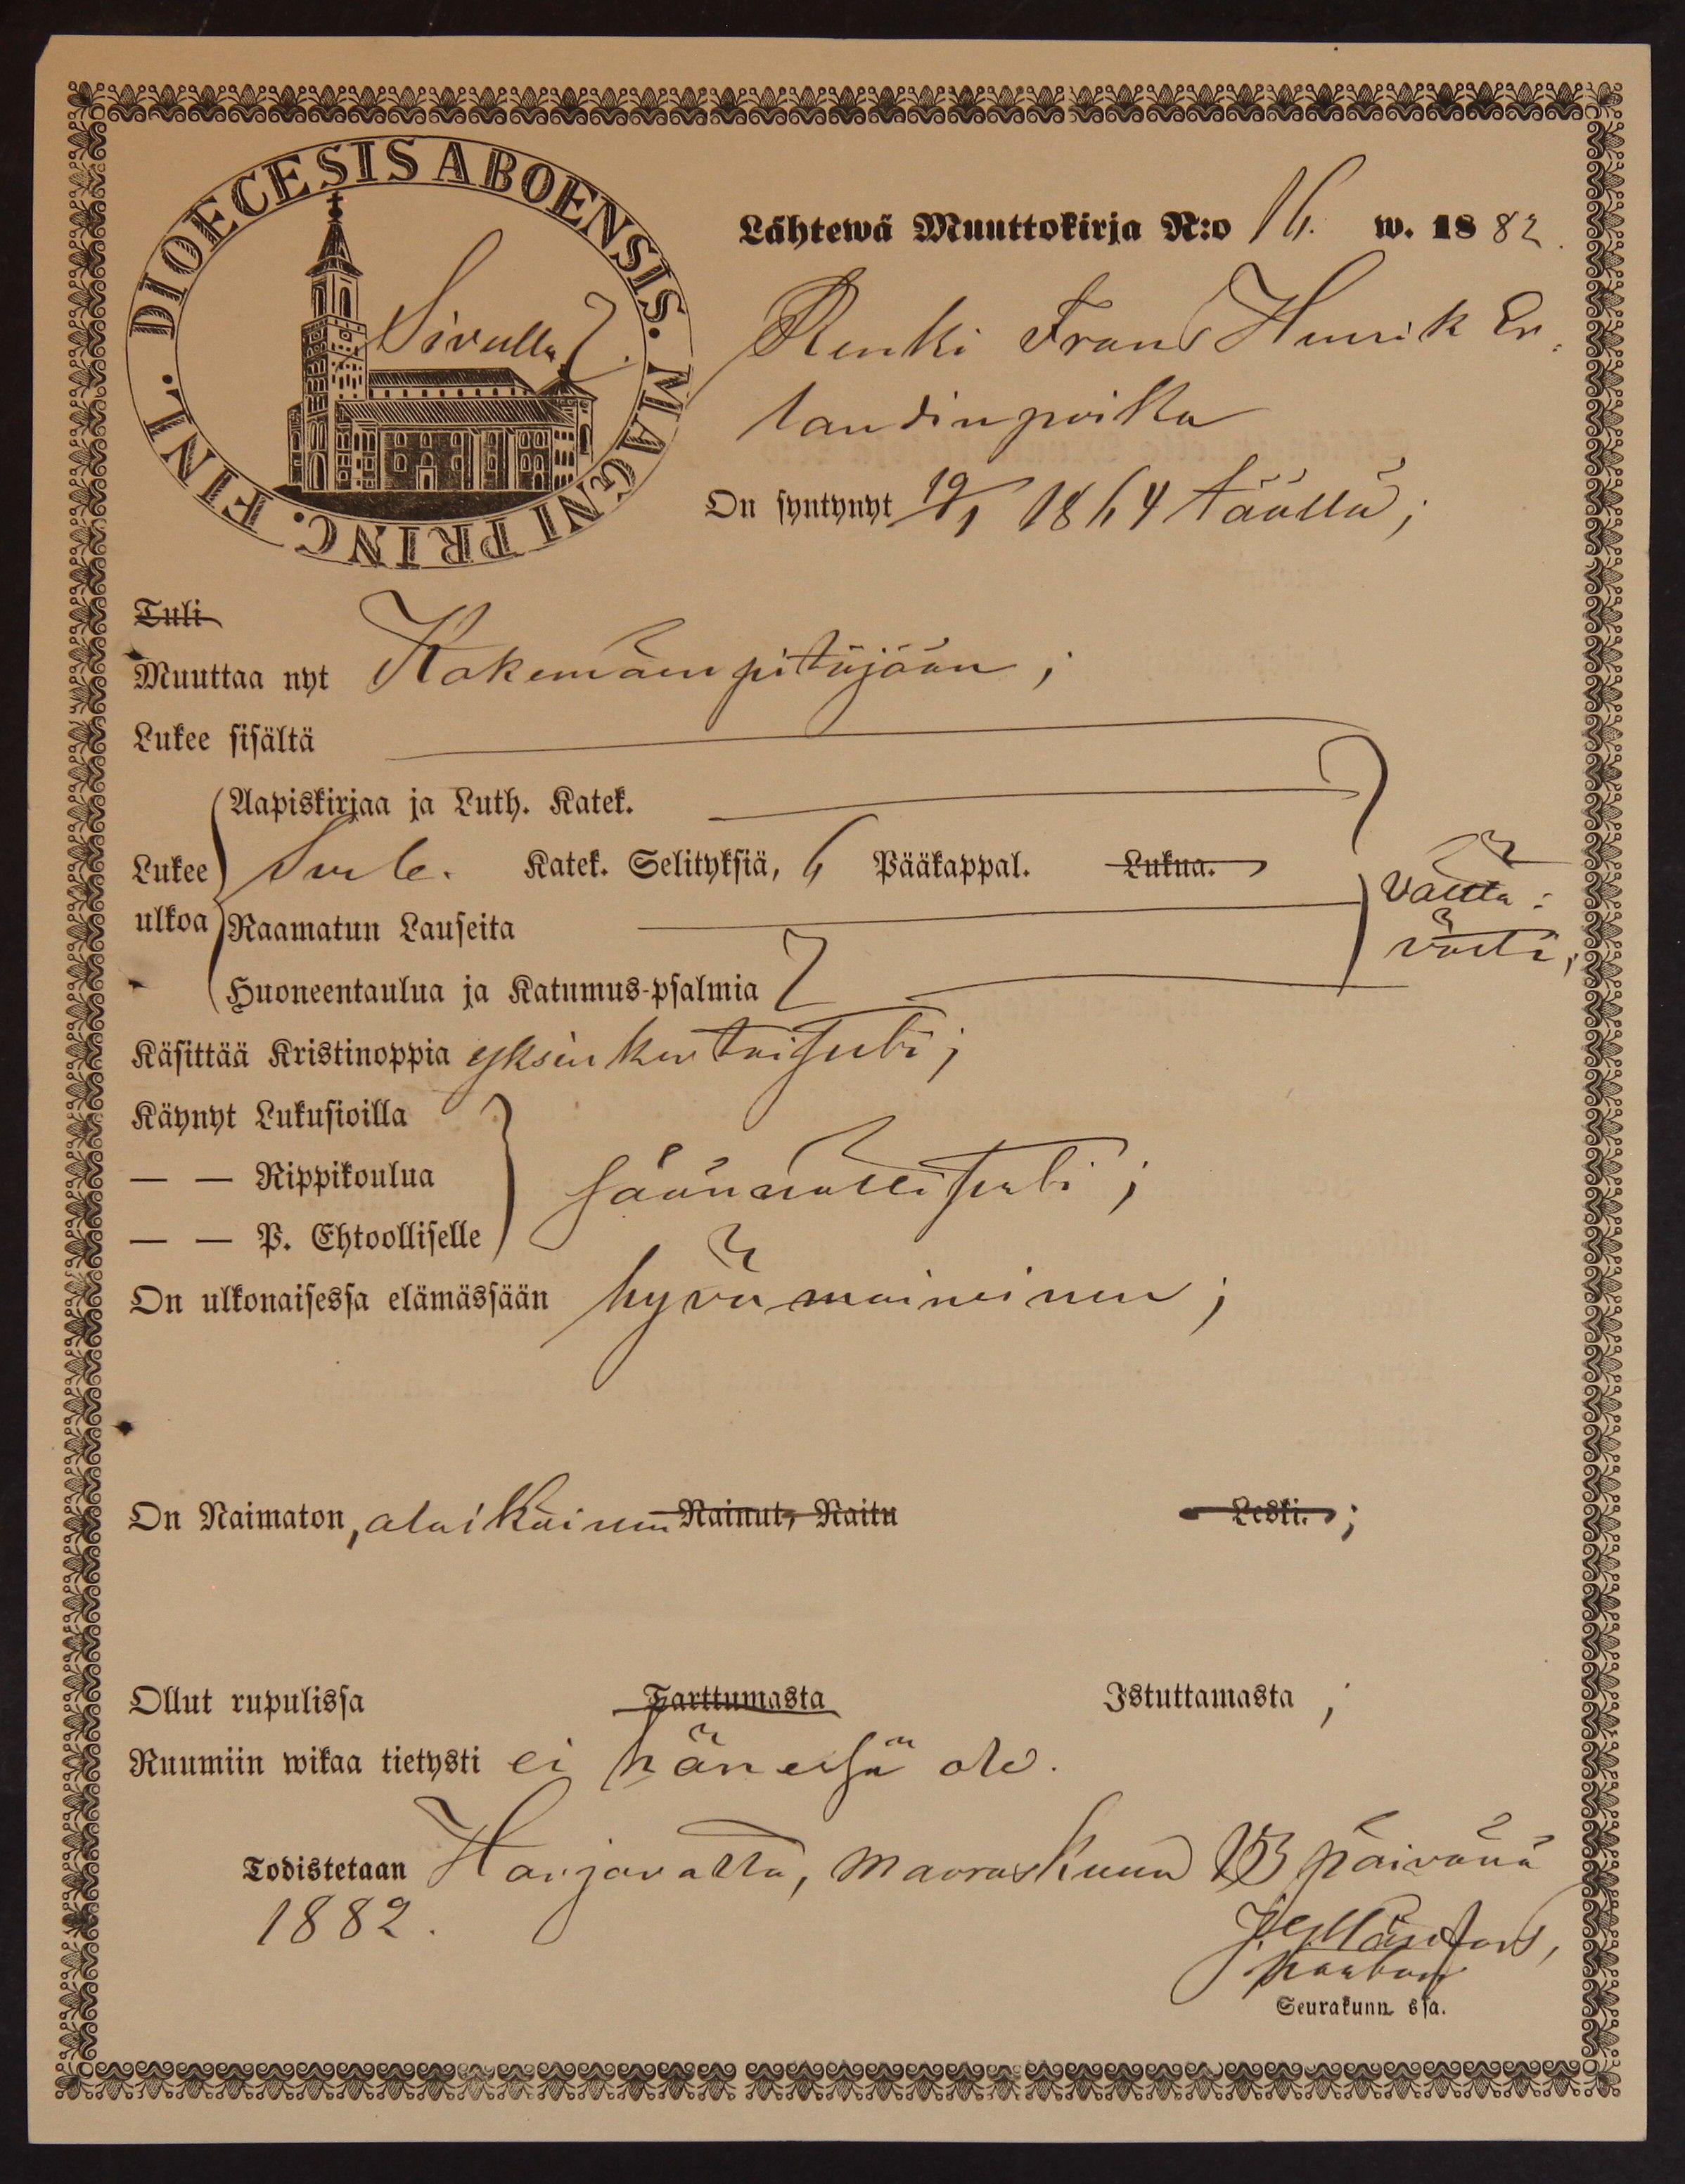 DIOECESIS ABOENSIS. MAGNI PRINC. FINL.
Sivulla 7.
Lähtewä Muuttokirja N:o 16. w. 1882.
Renki Frans Henrik Er-
landinpoika
On syntynyt 19/1 1864 täällä;
Tuli
Muuttaa nyt Kokemäen pitäjään;
Lukee sisältä
Aapiskirjaa ja Luth. Katek.
Lukee ulkoa
Katek. Selityksiä, 6 Pääkappal. Lukua.
Raamatun Lauseita
Huoneentaulua ja Katumus-psalmia
välttä-
västi;
Käsittää Kristinoppia yksinkertaisesti;
Käynyt Lukusioilla
— — Rippikoulua
— — P. Ehtoolliselle
säännöllisesti;
On ulkonaisessa elämässään hyvämaineinen;
On Naimaton, alaikäinen Nainut, Naitu Leski.;
Ollut rupulissa Tarttumasta Istuttamasta;
Ruumiin wikaa tietysti ei hänessä ole.
Todistetaan Harjavalta, marraskuun 13 päivänä
1882.
Seurakunn ssa.